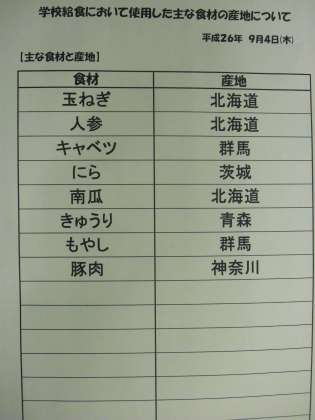 学校給食において使用した主な食材の産地について
平成26年 9月4日(木)
【主な食材と産地】
食材 産地
玉ねぎ 北海道
人参 北海道
キャベツ 群馬
にら 茨城
南瓜 北海道
きゅうり 青森
もやし 群馬
豚肉 神奈川